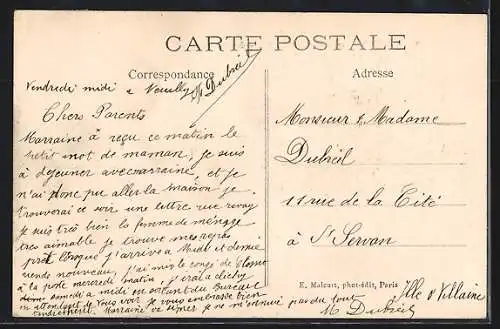 CARTE POSTALE
Correspondance
Adresse
M Dubreil
Vendredi midi à Neuilly
Chers Parents
Marraine à reçu ce matin le
petit mot de maman, je suis
à dejeuner avec marraine, et je
n'ai donc pu aller la maison je
trouverai ce soir une lettre rue
je suis très bien la femme de ménage
très aimable je trouve mes repas
prêt lorque j'arrive à Midi et demie
de nouveau, j'ai mis le
à la poste mercredi matin j'irai à clichy
samedi à midi en sortant du Bureau
en attendant de vous voir je vous embrasse bien
tendrement. Marraine je ne m'ennuie pas du tout
M Dubreil
Monsieur & Madame
Dubreil
11 rue de la Cité
à St Servan
Ille & Villaine
E. Malcuit, phot-édit, Paris